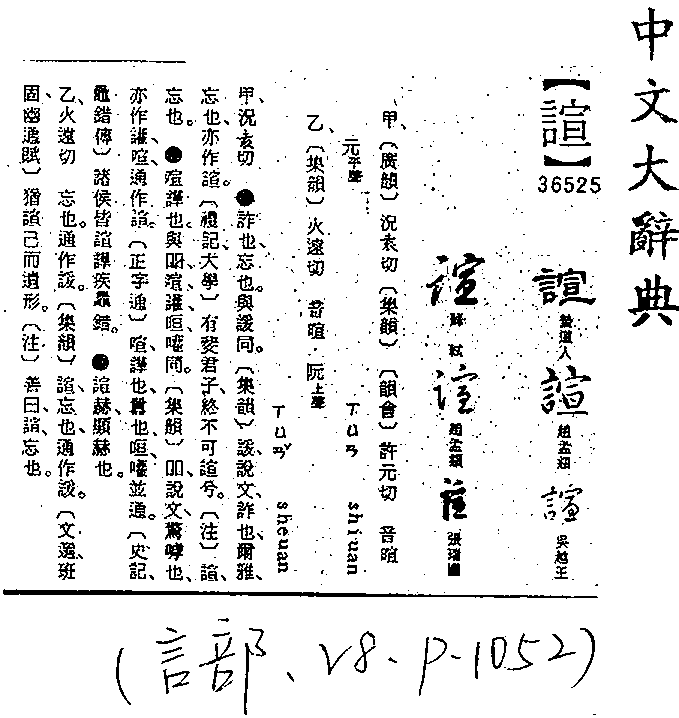 中文大辭典
【諠】
36525
諠 諠 趙孟頫 諠 吳越王
諠 蘇軾 諠 趙孟頫 諠 張瑞圖
甲、〔廣韻〕況袁切〔集韻〕〔韻會〕許元切 音暄
元平聲 ㄒㄩㄢ shiuan
乙、〔集韻〕火遠切 音暄 阮上聲
ㄒㄩㄢˇ sheuan
甲、況袁切 ●詐也、忘也。與諼同。〔集韻〕諼、說文、詐也、爾雅、
忘也、亦作諠。〔禮記、大學〕有斐君子、終不可諠兮。〔注〕諠、
忘也。●諠譁也。與吅諠讙喧嚾同。〔集韻〕吅、說文、驚嘑也、
亦作讙、喧、通作諠。〔正字通〕諠、譁也、喧嚾並通。〔史記、
鼂錯傳〕諸侯皆諠譁、疾鼂錯。●諠赫、顯赫也。
乙、火遠切 忘也。通作諼。〔集韻〕諠、忘也、通作諼。〔文選、班
固、幽通賦〕猶諠己而遺形。〔注〕善曰、諠、忘也。
(言部、V8、P-1052)